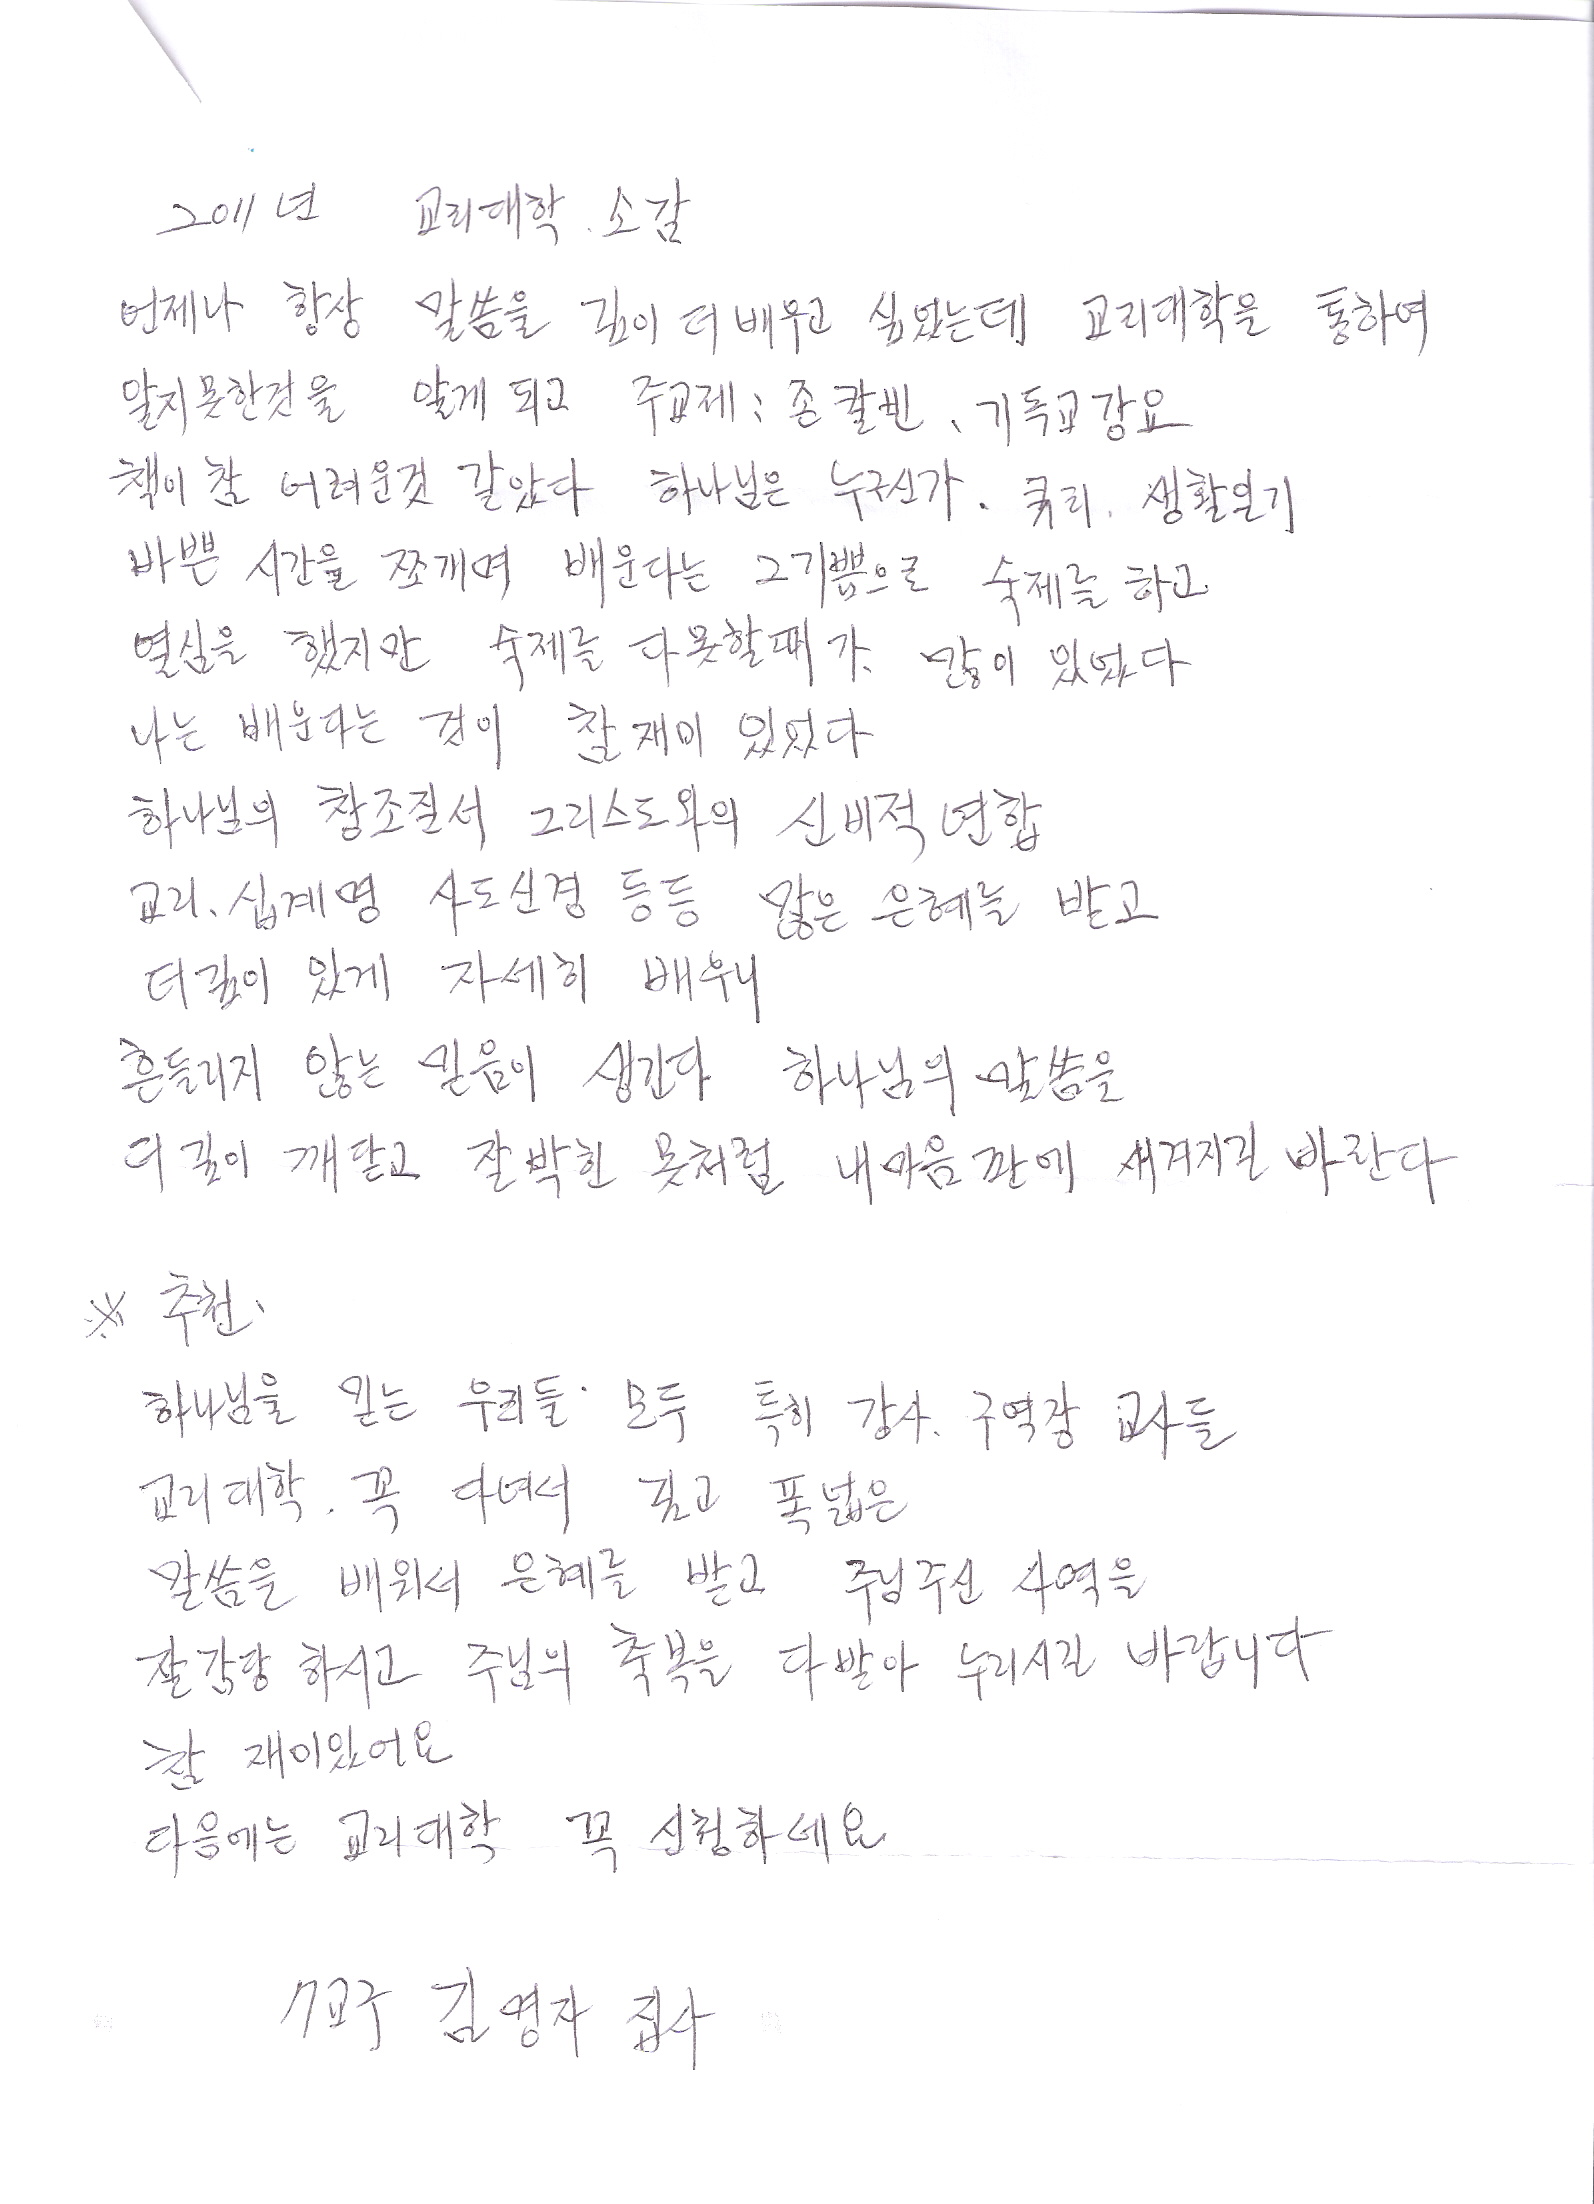 2011년 교리대학. 소감
언제나 항상 말씀을 깊이 더 배우고 싶었는데 교리대학을 통하여
알지못한것을 알게 되고 주교제: 존칼빈、기독교강요
책이 참 어려운것 같았다 하나님은 누구신가. 쿡리. 생활일기
바쁜 시간을 쪼개며 배운다는 그기쁨으로 숙제를 하고
열심을 했지만 숙제를 다못할때가、많이 있었다
나는 배운다는 것이 참 재미 있었다
하나님의 창조질서 그리스도와의 신비적 연합
교리、십계명 사도신경 등등 많은 은혜를 받고
더깊이 있게 자세히 배우니
흔들리지 않는 믿음이 생긴다 하나님의 말씀을
더 깊이 깨닫고 잘 박힌 못처럼 내마음 판에 새겨지길 바란다
※ 추천、
하나님을 믿는 우리들· 모두 특히 강사、구역장 교사들
교리대학. 꼭 다녀서 깊고 폭넓은
말씀을 배워서 은혜를 받고 주님주신 사역을
잘감당 하시고 주님의 축복을 다받아 누리시길 바랍니다
참 재미있어요
다음에는 교리대학 꼭 신청하세요
7교구 김영자 집사